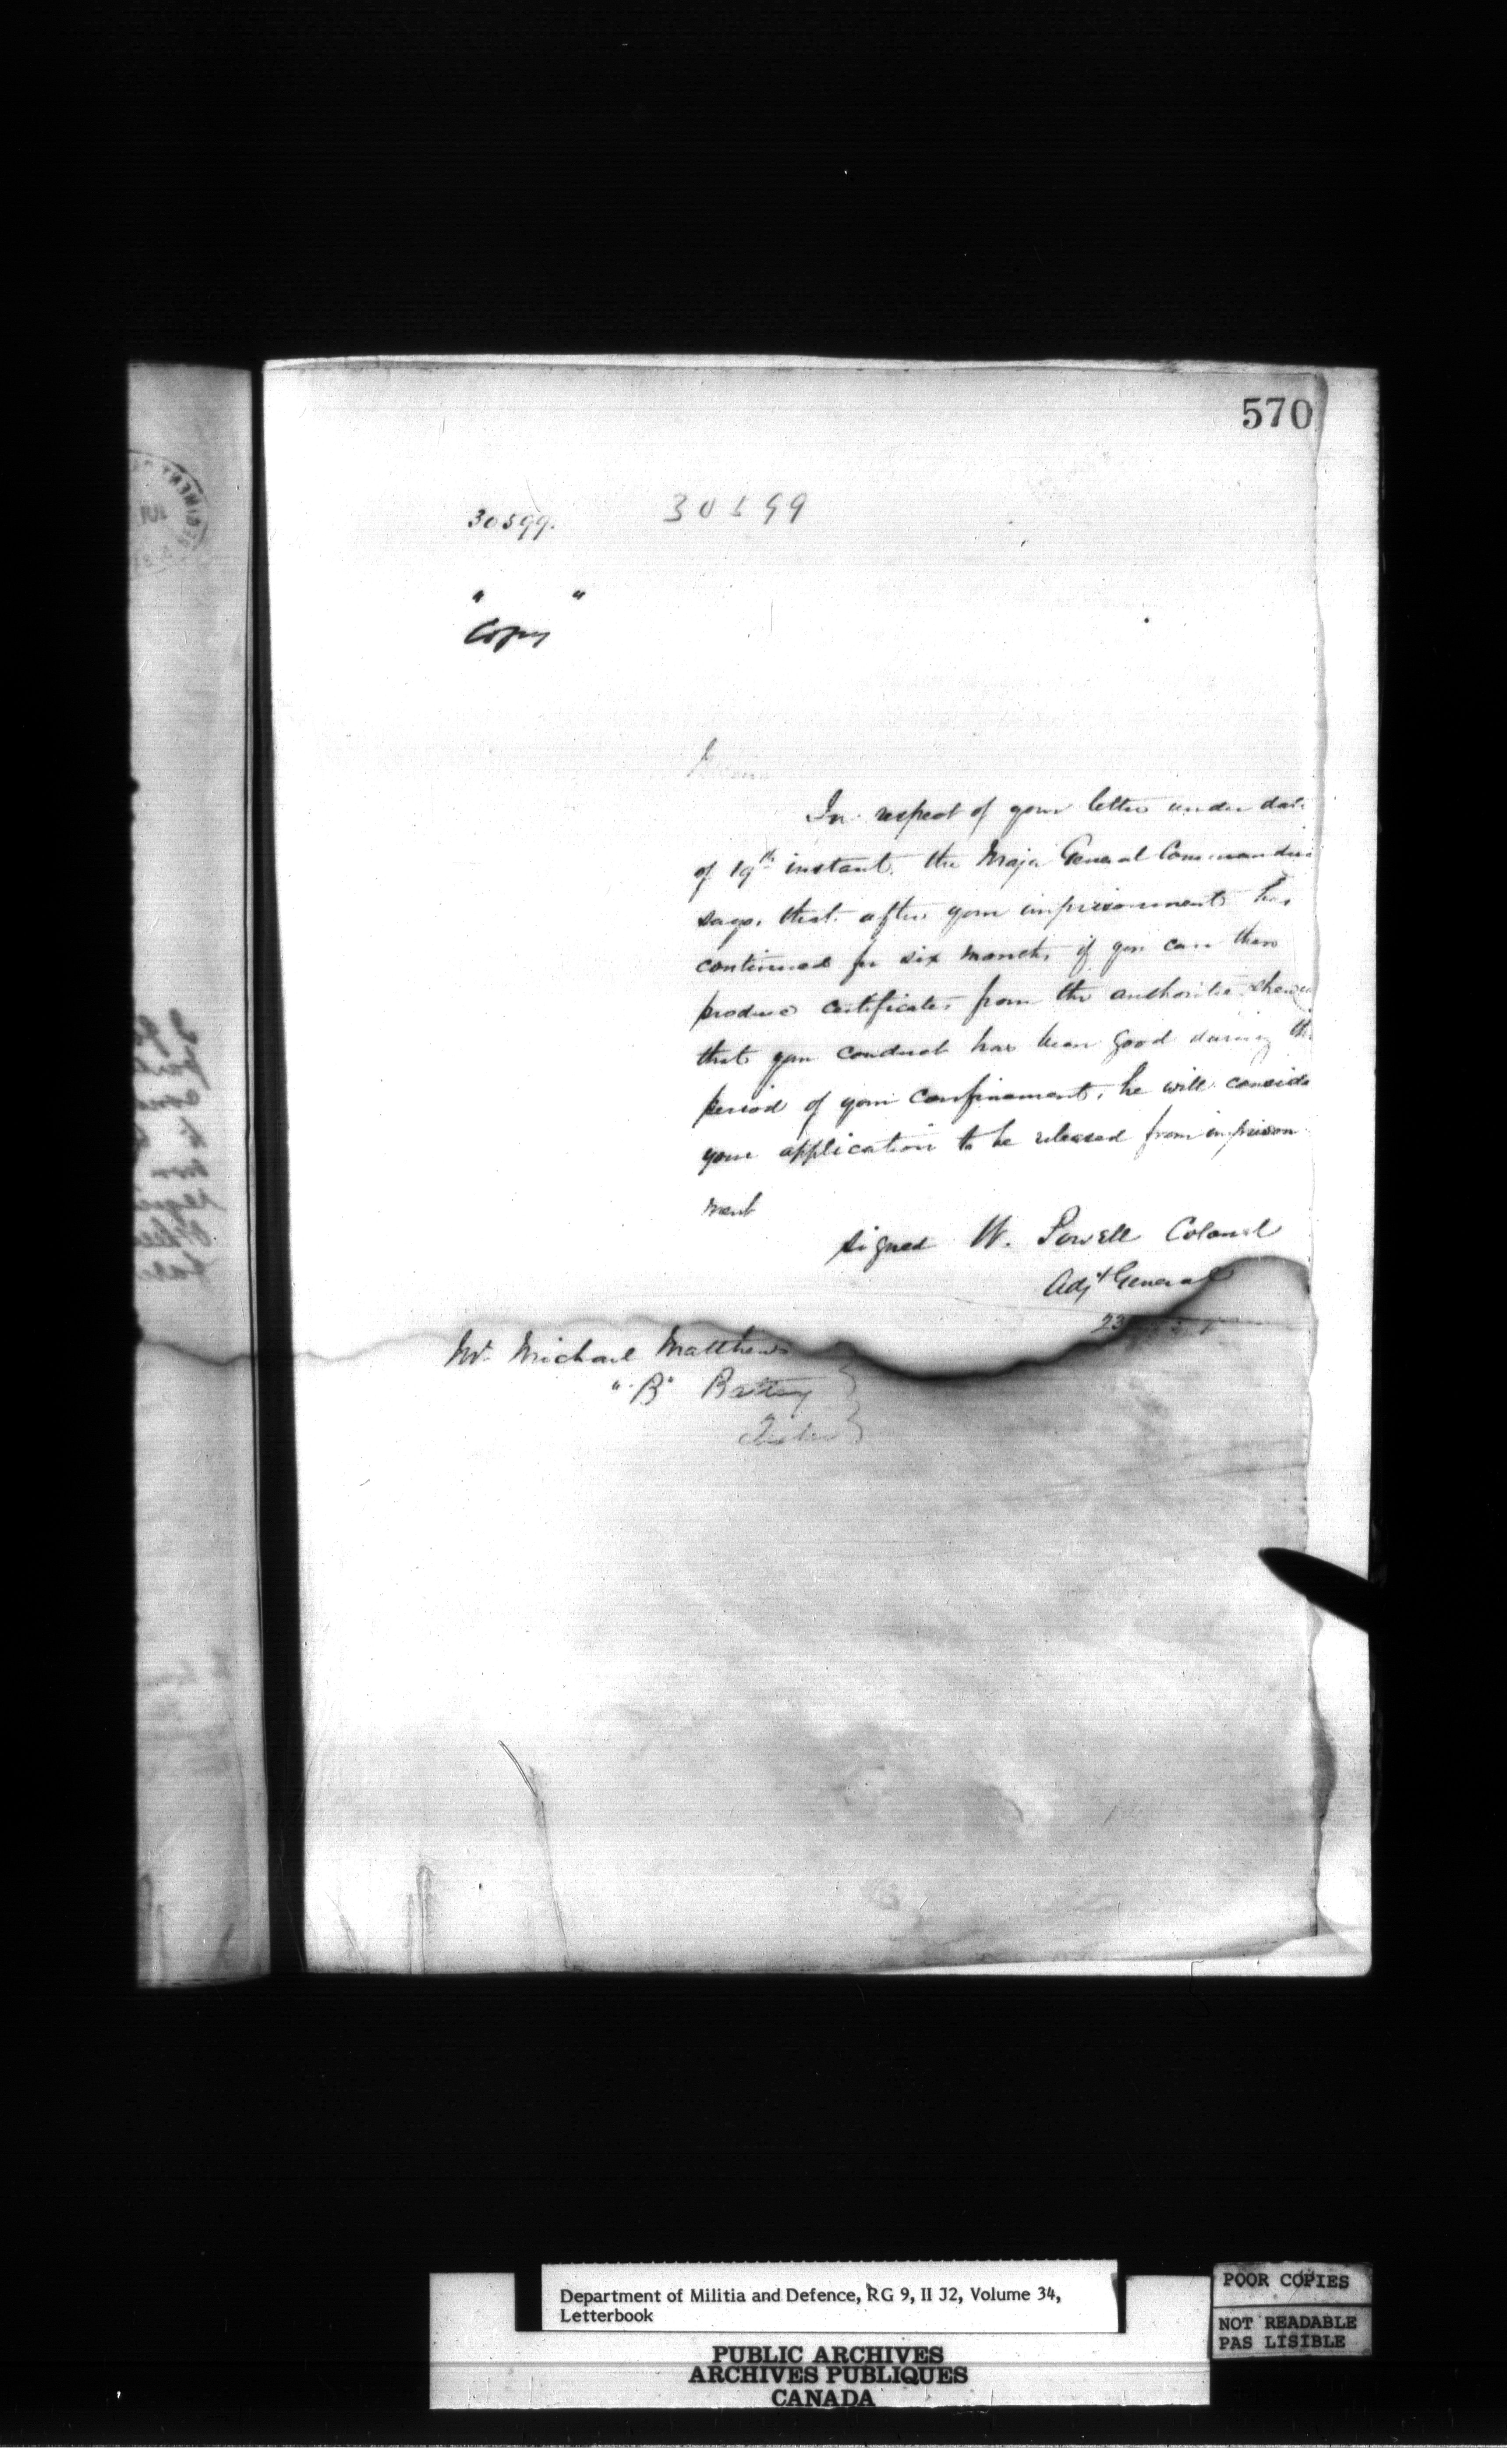 570
30599. 30599
" "
Copy
In respect of your letter under date
of 19th instant. the Major General Commanding
says, that after your imprisonment has
continued for six months if you can then
produce certificates from the authorities
that your conduct has been good during the
period of your confinement, he will
your application to be released from imprison
ment
signed W. Powell Colonel
Adjt General
23
Mr. Michael Matthews
"B" Battery
Department of Militia and Defence, RG 9, II J2, Volume 34,
Letterbook
PUBLIC ARCHIVES
ARCHIVES PUBLIQUES
CANADA
POOR COPIES
NOT READABLE
PAS LISIBLE